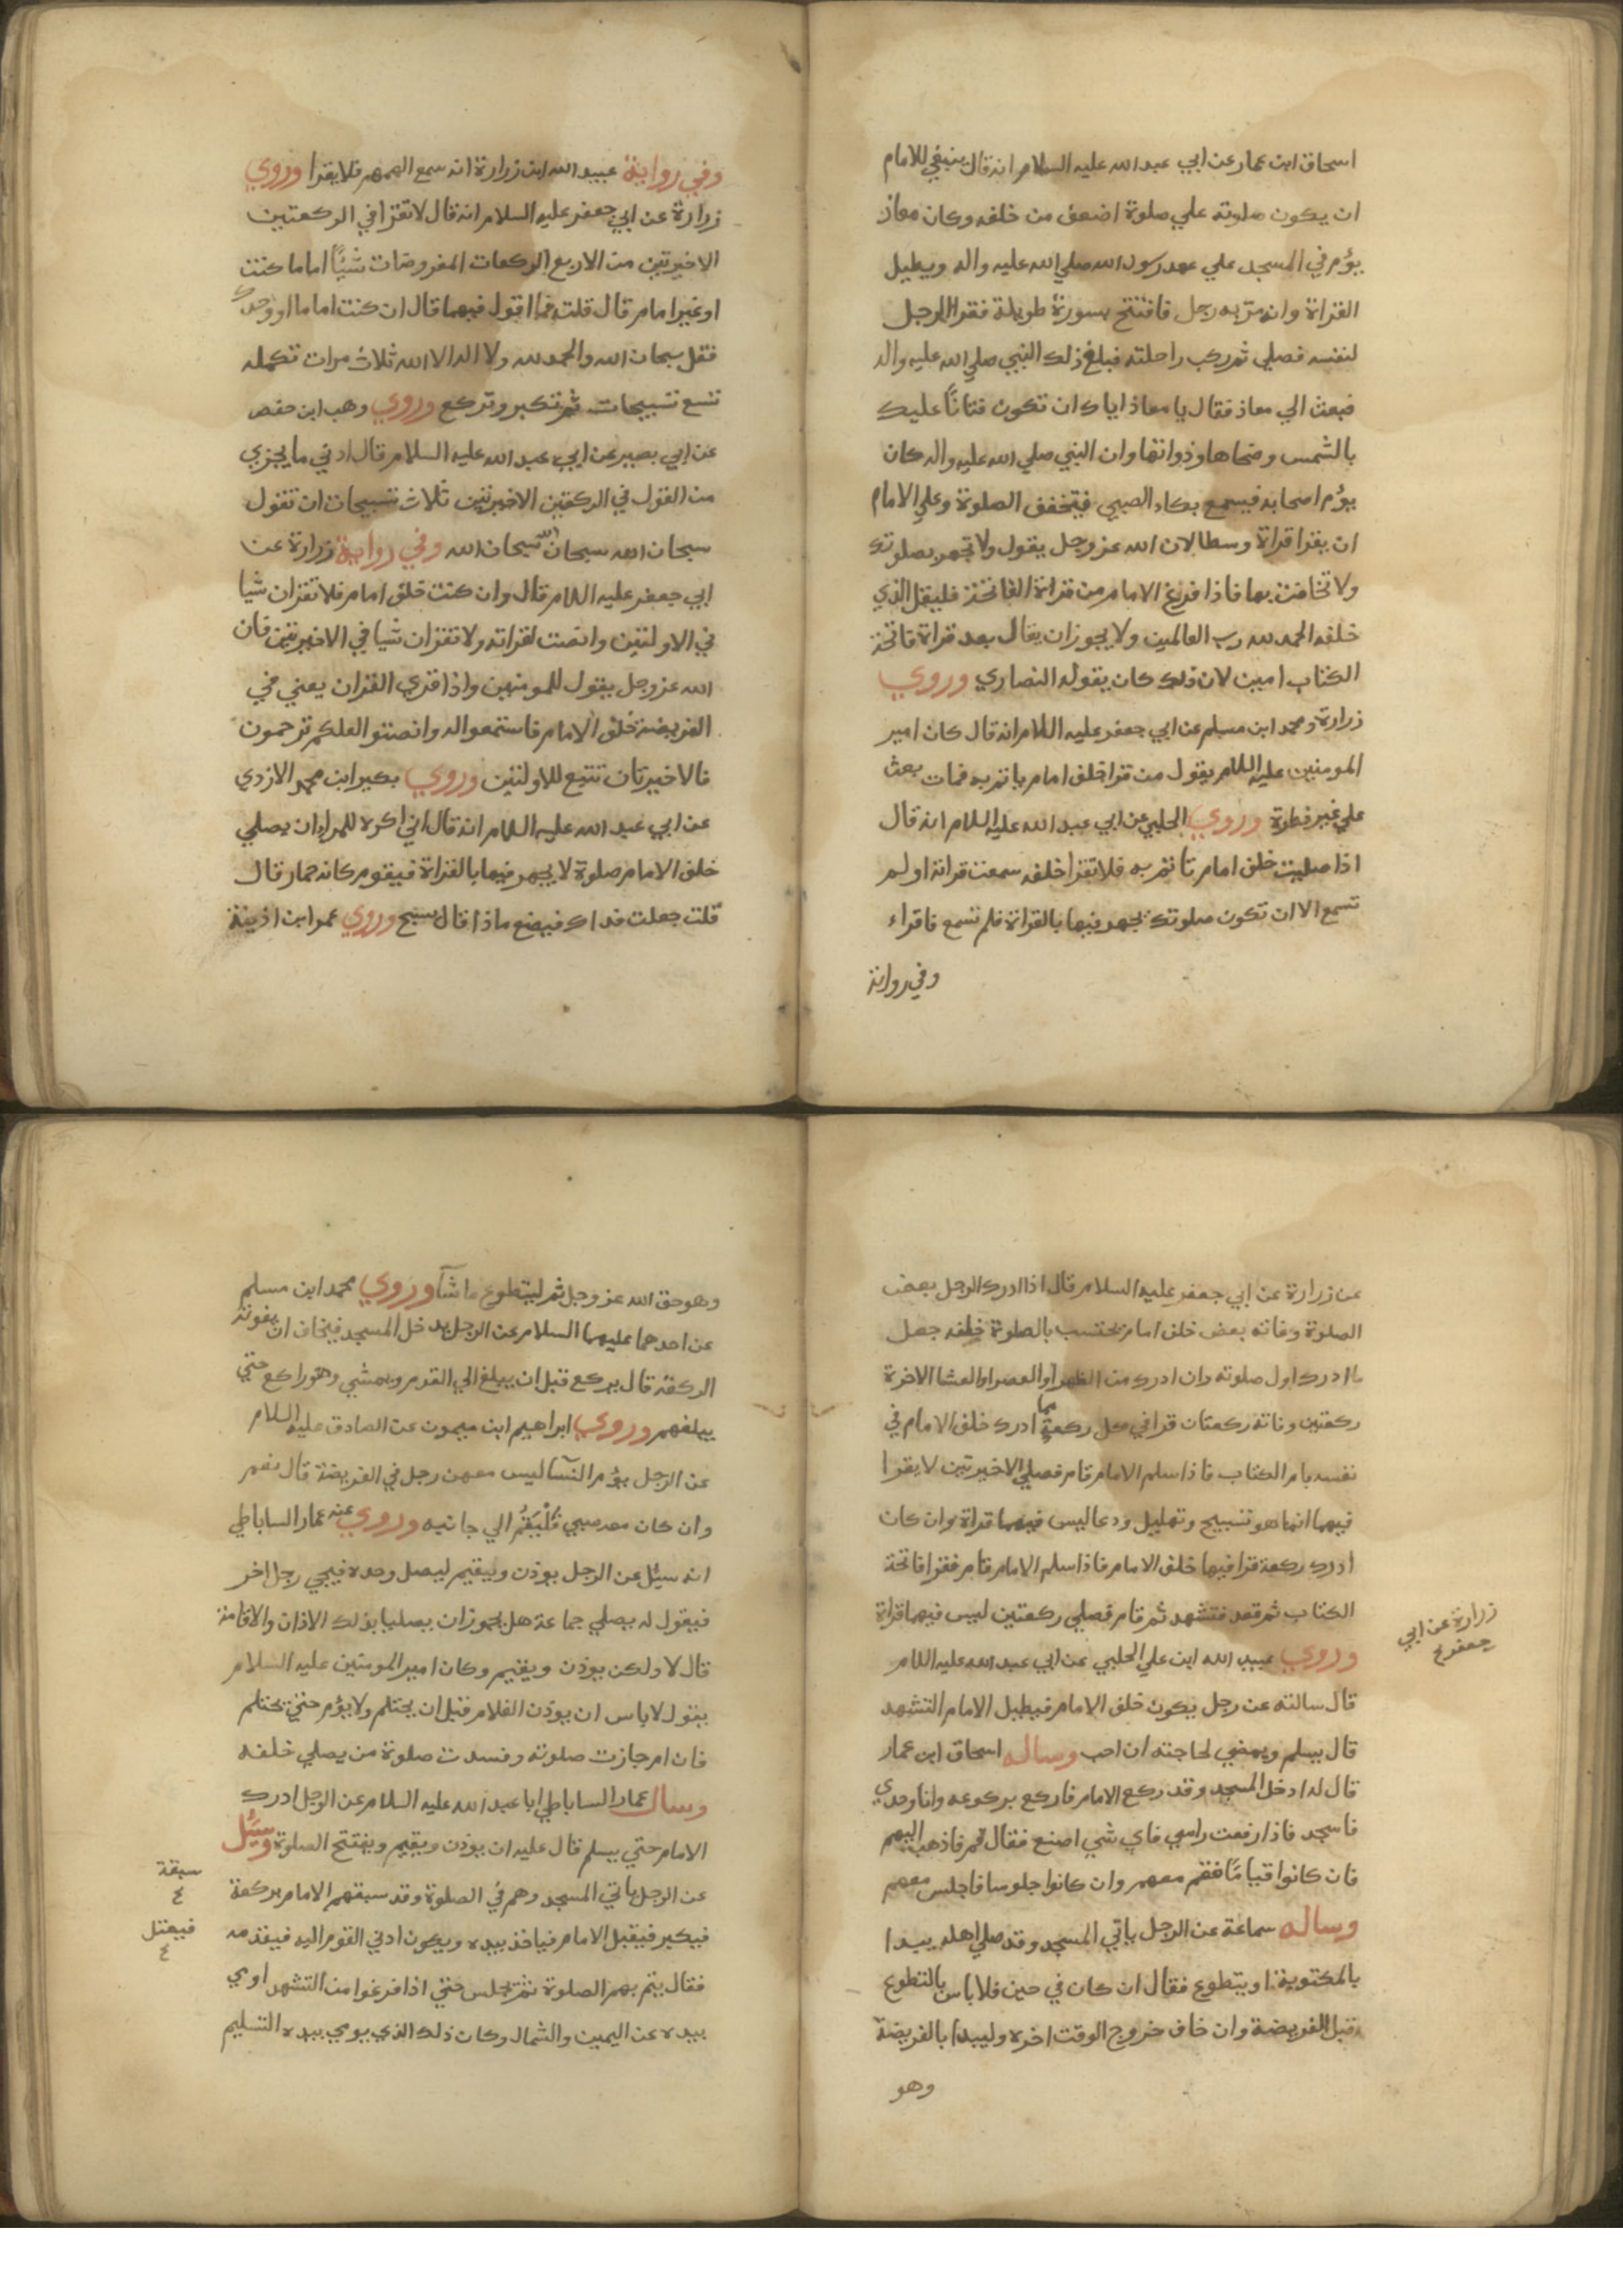 اسحاق ابن عمار عن ابي عبد الله عليه السلام انه قال ينبغي للامام
ان يكون صلوته علي صلوة اضعف من خلفه وكان معاذ
يؤم في المسجد علي عهد رسول الله صلي الله عليه واله ويطيل
القراة وانه مر به رجل فافتتح بسورة طويلة فقرا الرجل
لنفسه فصلي ثم ركب راحلته فبلغ ذلك النبي صلي الله عليه واله
فبعث الي معاذ فقال يا معاذ اياك ان تكون فتانًا عليك
بالشمس وضحاها وذواتها وان النبي صلي الله عليه واله كان
يؤم اصحابه فيسمع بكاء الصبي فيتخفف الصلوة وعلي الامام
ان يقرا قراة وسطا لان الله عز وجل يقول ولا تجهر بصلوتك
ولا تخافت بها فاذا فرغ الامام من قراة الفاتحة فليقل الذي
خلفه الحمد لله رب العالمين ولا يجوز ان يقال بعد قراة فاتحة
الكتاب امين لان ذلك كان يقوله النصاري وروي
زرارة ومحمد ابن مسلم عن ابي جعفر عليه السلام انه قال كان امير
المومنين عليه السلام يقول من قرا خلف امام ياتم به فمات بعث
علي غير فطرة وروي الحلبي عن ابي عبد الله عليه السلام انه قال
اذا صليت خلف امام تاتم به فلا تقرا خلفه سمعت قراته او لم
تسمع الا ان تكون صلوتك يجهر فيها بالقراة فلم تسمع فاقراء
وفي رواية
وفي رواية عبيد الله ابن زرارة انه سمع الهمهمه فلا يقرا وروي
زرارة عن ابي جعفر عليه السلام انه قال لا تقرا في الركعتين
الاخيرتين من الاربع الركعات المفروضات شيئًا اماما كنت
او غير امام قال قلت فما اقول فيهما قال ان كنت اماما او وحدك
فقل سبحان الله والحمد لله ولا اله الا الله ثلاث مرات تكمله
تسع تسبيحات ثم تكبر وتركع وروي وهب ابن حفص
عن ابي بصير عن ابي عبد الله عليه السلام قال ادني ما يجزي
من القول في الركعتين الاخيرتين ثلاث تسبيحات ان تقول
سبحان الله سبحان الله سبحان الله وفي رواية زرارة عن
ابي جعفر عليه السلام قال وان كنت خلف امام فلا تقران شيا
في الاولتين وانصت لقراته ولا تقران شيا في الاخيرتين فان
الله عز وجل يقول للمومنين واذا قري القران يعني في
الفريضة خلف الامام فاستمعوا له وانصتوا لعلكم ترحمون
فالاخيرتان تتبع للاولتين وروي بكير ابن محمد الازدي
عن ابي عبد الله عليه السلام انه قال اني اكره للمرا ان يصلي
خلف الامام صلوة لا يجهر فيها بالقراة فيقوم كانه حمار قال
قلت جعلت فداك فيصنع ماذا قال يسبح وروي عمر ابن اذينة
عن زرارة عن ابي جعفر عليه السلام قال اذا ادرك الرجل بعض
الصلوة وفاته بعض خلف امام يحتسب بالصلوة خلفه جعل
ما ادرك اول صلوته وان ادرك من الظهر او العصر او العشا الاخرة
ركعتين وفاته ركعتان قرا في كل ركعة مما ادرك خلف الامام في
نفسه بام الكتاب فاذا سلم الامام قام فصلي الاخيرتين لا يقرا
فيهما انما هو تسبيح وتهليل ودعا ليس فيهما قراة وان كان
ادرك ركعة قرا فيها خلف الامام فاذا سلم الامام قام فقرا فاتحة
الكتاب ثم قعد فتشهد ثم قام فصلي ركعتين ليس فيهما قراة
وروي عبيد الله ابن علي الحلبي عن ابي عبد الله عليه السلام
زرارة عن ابي
جعفر ع
قال سالته عن رجل يكون خلف الامام فيطيل الامام التشهد
قال يسلم ويمضي لحاجته ان احب وساله اسحاق ابن عمار
قال له ادخل المسجد وقد ركع الامام فاركع بركوعه وانا وحدي
فاسجد فاذا رفعت راسي فاي شي اصنع فقال قم فاذهب اليهم
فان كانوا قيامًا فقم معهم وان كانوا جلوسا فاجلس معهم
وساله سماعة عن الرجل ياتي المسجد وقد صلي اهله يبدا
بالمكتوبة او يتطوع فقال ان كان في حين فلا باس بالتطوع
قبل الفريضة وان خاف خروج الوقت اخره وليبدا بالفريضة
وهو
وهو حق الله عز وجل ثم ليتطوع ما شآ وروي محمد ابن مسلم
عن احدهما عليهما السلام عن الرجل يدخل المسجد فيخاف ان يفوته
الركعة قال يركع قبل ان يبلغ الي القوم ويمشي وهو راكع حتي
يبلغهم وروي ابراهيم ابن ميمون عن الصادق عليه السلام
عن الرجل يؤم النسآ ليس معهن رجل في الفريضة قال نعم
وان كان معه صبي فليقم الي جانبه وروي عنه عمار الساباطي
انه سيئل عن الرجل يوذن ويقيم ليصل وحده فيجي رجل اخر
فيقول له يصلي جماعة هل يجوز ان يصليا بذلك الاذان والاقامة
قال لا ولكن يوذن ويقيم وكان امير المومنين عليه السلام
يقول لا باس ان يوذن الغلام قبل ان يحتلم ولا يؤم حتي يحتلم
فان ام جازت صلوته وفسدت صلوة من يصلي خلفه
وسال عمار الساباطي ابا عبد الله عليه السلام عن الرجل ادرك
الامام حتي يسلم قال عليه ان يوذن ويقيم ويفتتح الصلوة وسئل
عن الرجل ياتي المسجد وهم في الصلوة وقد سبقهم الامام بركعة
سبقة
ع
فيكبر فيقبل الامام فياخذ بيده ويكون ادني القوم اليه فيقدمه
فيعتل
ع
فقال يتم بهم الصلوة ثم يجلس حتي اذا فرغوا من التشهد اومي
بيده عن اليمين والشمال وكان ذلك الذي يومي بيده التسليم